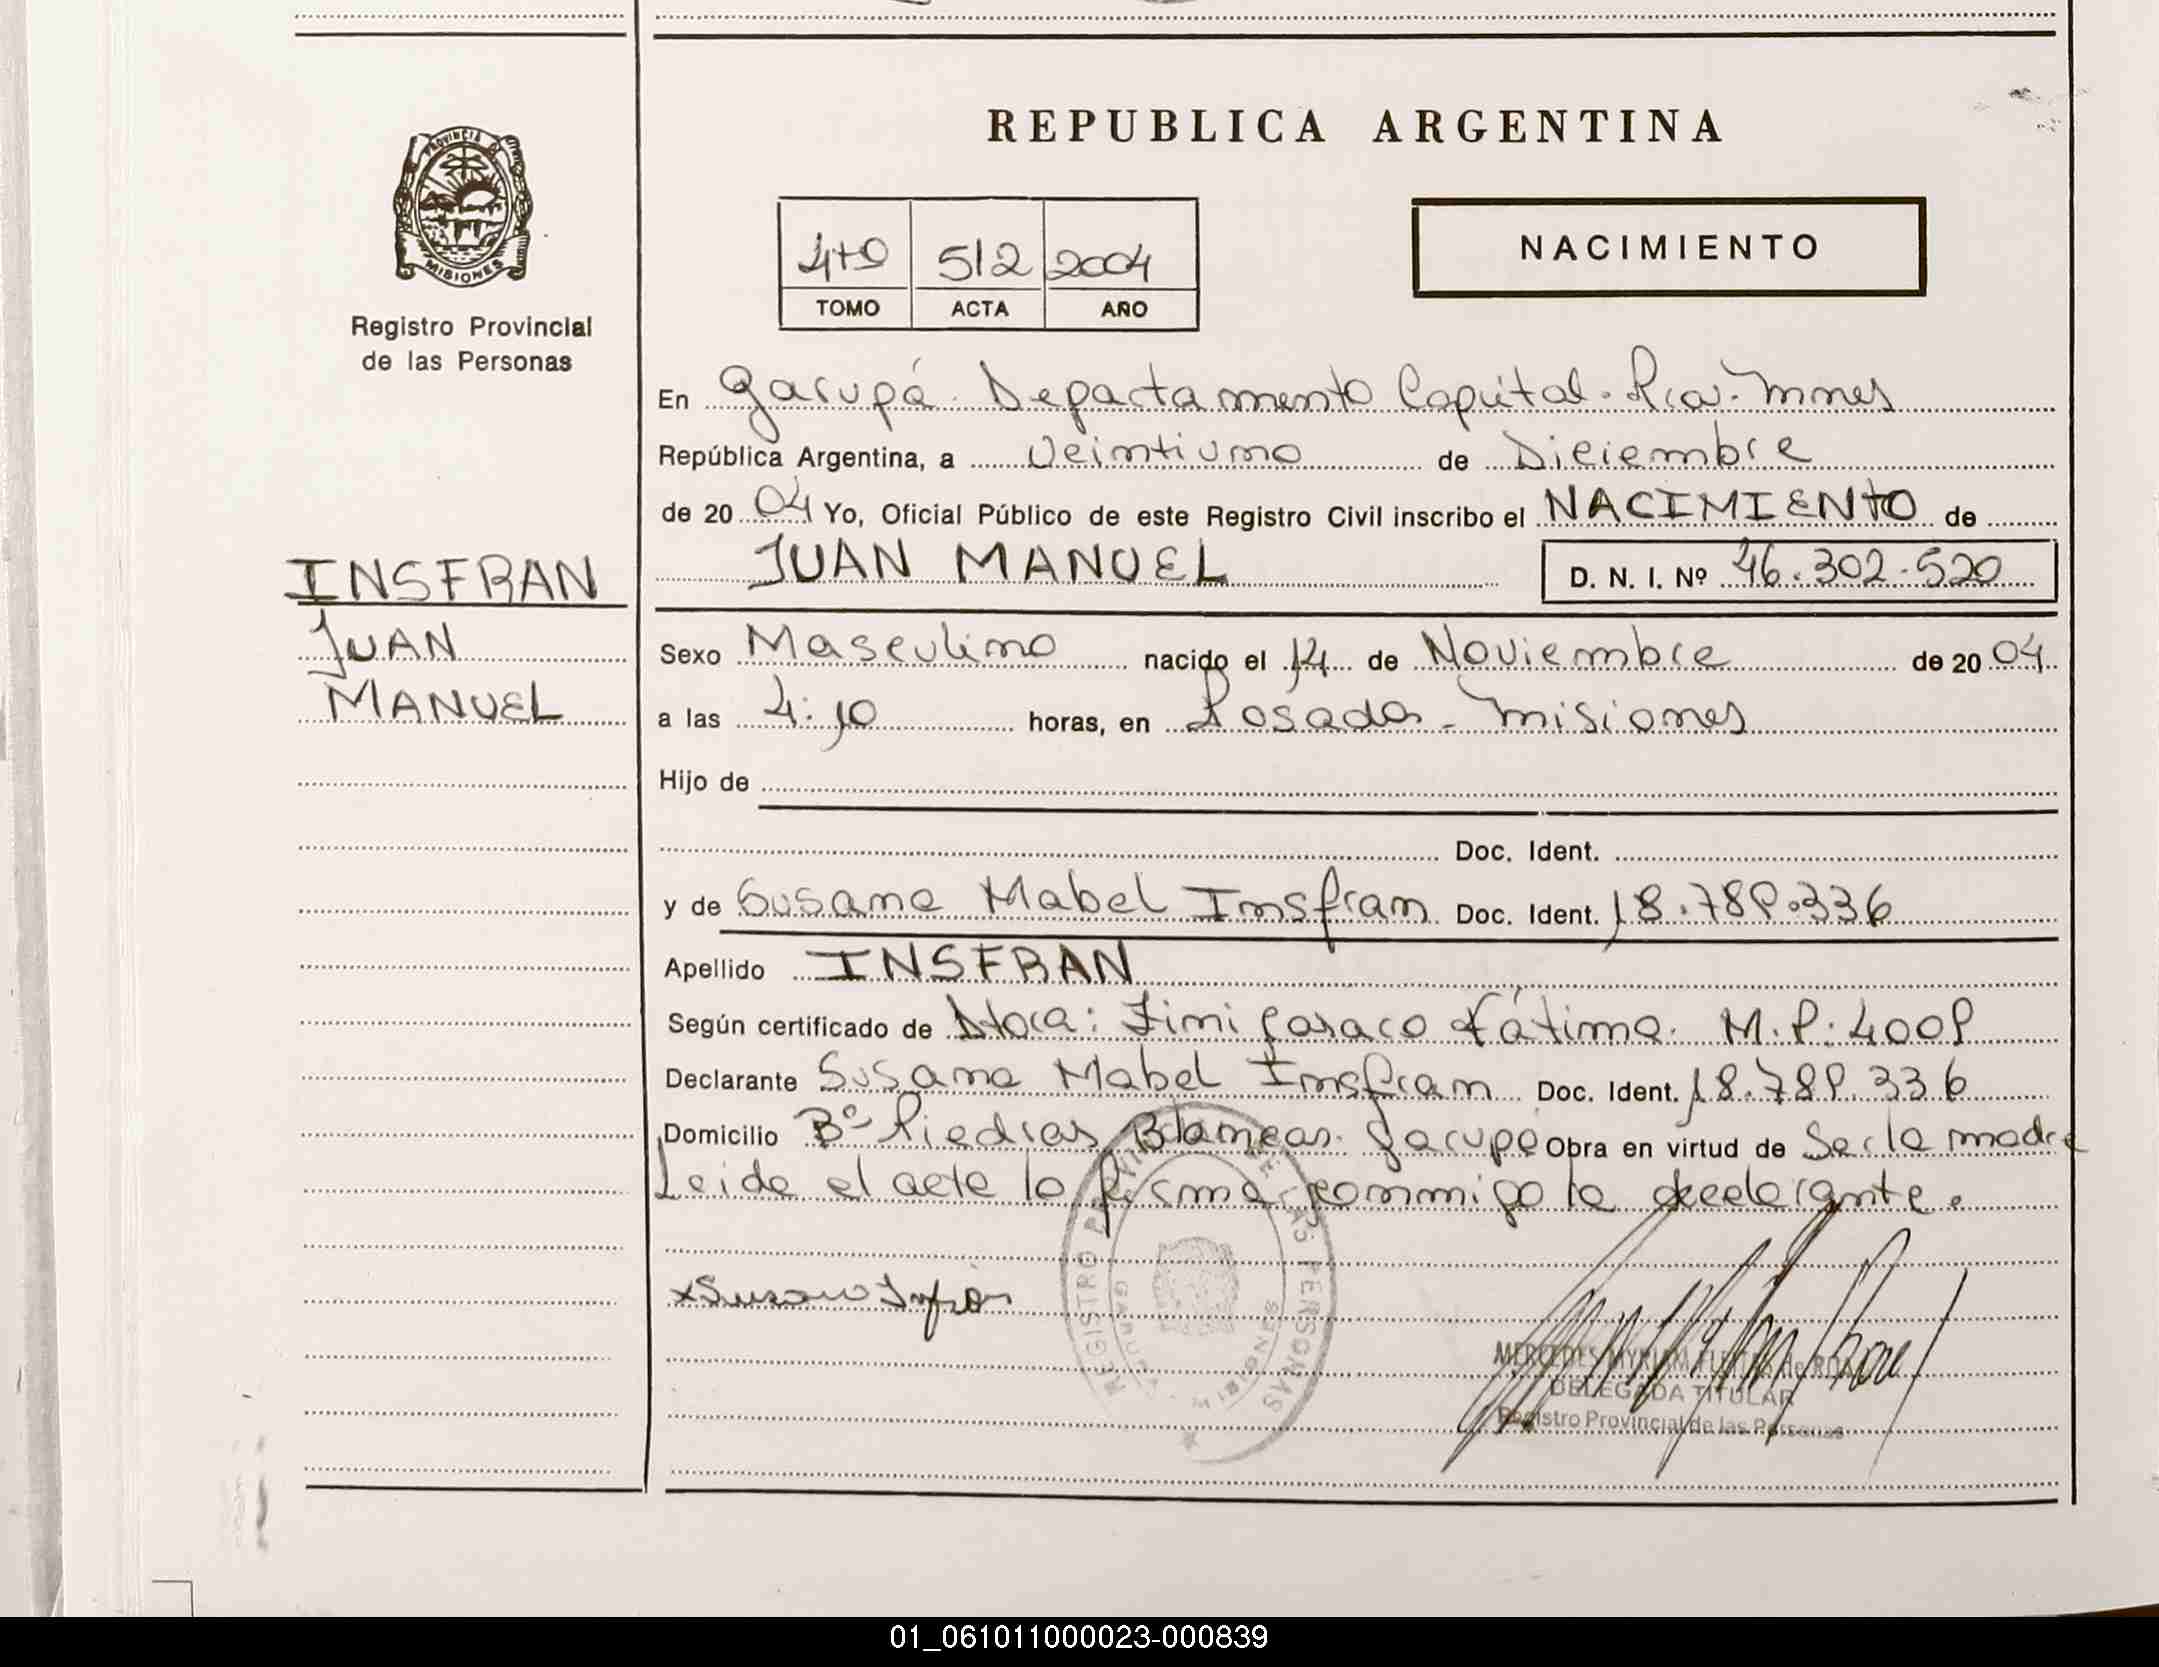 REPUBLICA ARGENTINA
PROVINCIA DE MISIONES
Registro Provincial
de las Personas
4to 512 2004
TOMO ACTA AÑO
NACIMIENTO
En Garupá Departamento Capital. Pcia. Mnes
República Argentina, a Veintiuno de Diciembre
de 2004 Yo, Oficial Público de este Registro Civil inscribo el NACIMIENTO de
JUAN MANUEL D. N. I. Nº 46.302.520
INSFRAN
JUAN
MANUEL
Sexo Masculino nacido el 14 de Noviembre de 2004
a las 4:10 horas, en Posadas - Misiones
Hijo de
Doc. Ident.
y de Susana Mabel Insfran Doc. Ident. 18.789.336
Apellido INSFRAN
Según certificado de Dtora: Fátima. M.P: 4009
Declarante Susana Mabel Insfran Doc. Ident. 18.789.336
Domicilio Bº Piedras Blancas. Garupá Obra en virtud de Ser la madre
Leida el acta la firma conmigo la declarante.
x Susana Insfran
REGISTRO PROVINCIAL DE LAS PERSONAS
GARUPA MISIONES
MERCEDES MYRIAM de
DELEGADA TITULAR
Registro Provincial de las Personas
01_061011000023-000839